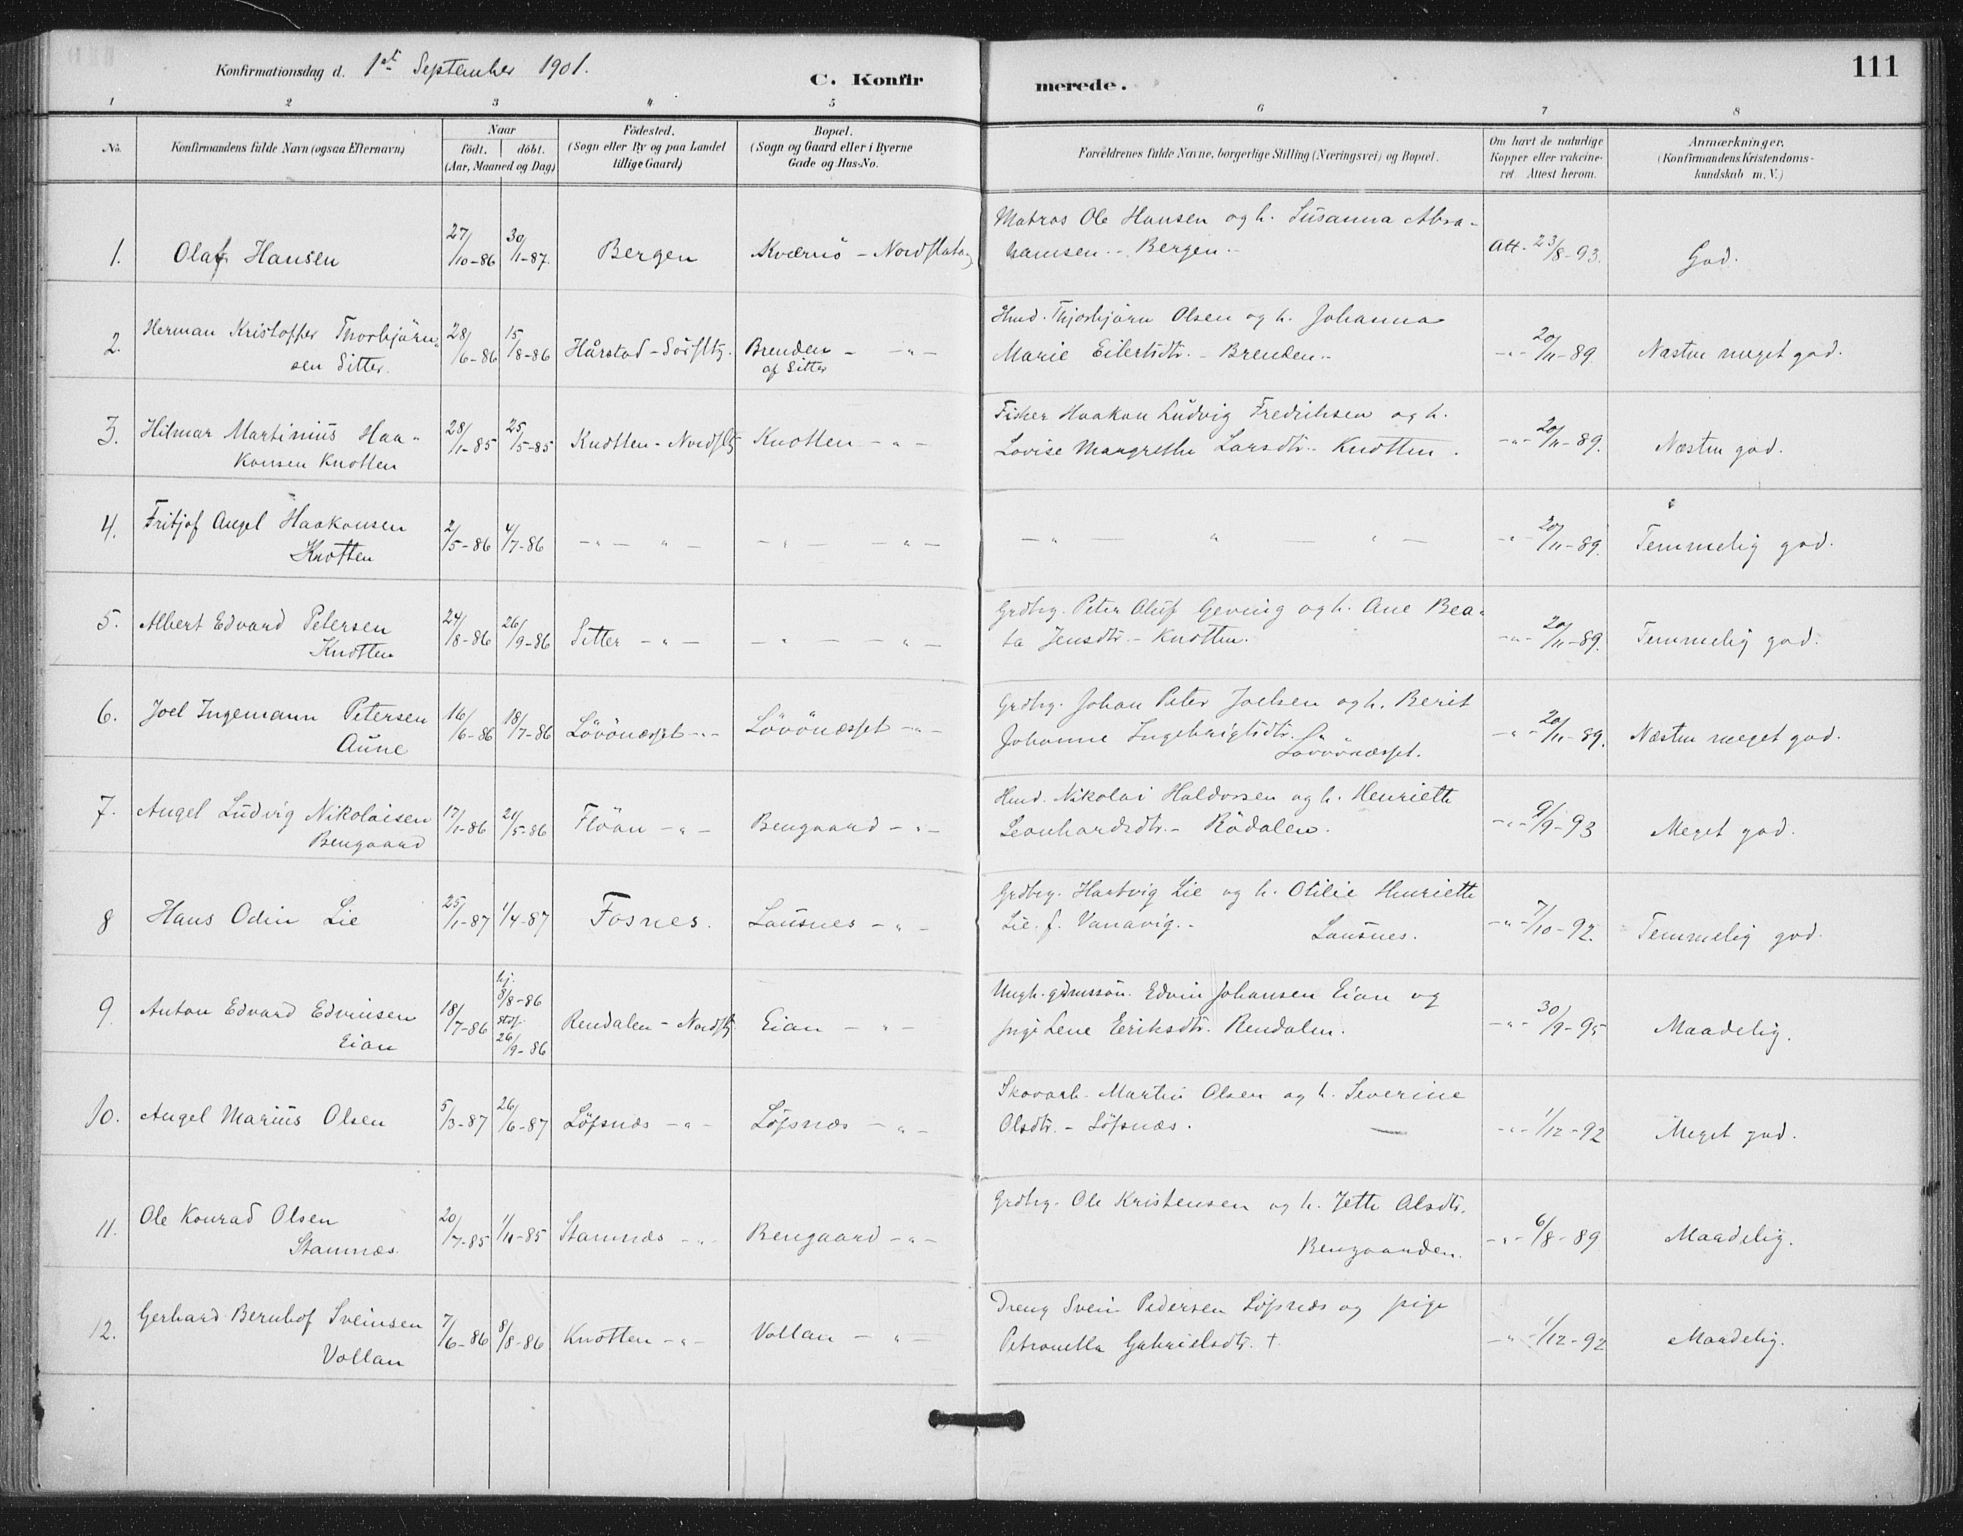 111
Konfirmationsdag d. 1st September 1901.
C. Konfirmerede.
1 2 3 4 5 6 7 8
No.
Konfirmandens fulde Navn (ogsaa Efternavn)
Naar
födt. döbt.
(Aar, Maaned og Dag)
Födested.
(Sogn eller By og paa Landet
tillige Gaard)
Bopæl.
(Sogn og Gaard eller i Byerne
Gade og Hus-No.
Forældrenes fulde Navne, borgerlige Stilling (Næringsvei) og Bopæl.
Om havt de naturlige
Kopper eller vakcine-
ret. Attest herom.
Anmærkninger.
(Konfirmandens Kristendoms-
kundskab m. V.)
1. Olaf Hansen 27/10-86 30/1-87. Bergen Kværnö - Nordflatang
Matros Ole Hansen og h. Susanna Abra-
hamsen - Bergen - Att. 23/8-93. God.
2. Herman Kristoffer Thorbjörn-
sen Sitter. 28/6-86 15/8-86 Hårstad - Sörfltg. Brenden - " -
af Sitter
Hmd. Thjorbjörn Olsen og h. Johanna
Marie Eilertsdtr. - Brenden - - " - 20/11-89. Næsten meget god.
3. Hilmar Martinius Haa-
konsen Knotten 28/1-85 25/5-85 Knotten - Nordfltg Knotten - " -
Fisker Haakon Ludvig Fredriksen og h.
Lovise Margrethe Larsdtr. - Knotten. - " - 20/11-89. Næsten god.
4. Fritjof Angel Haakonsen
Knotten 2/5-86 4/7-86 - " - " - - " - - " -
- " - " - " - - " - 20/11-89. Temmelig god.
5. Albert Edvard Petersen
Knotten 24/8-86 26/9-86 Sitter - " - - " - - " -
Grdbrg. Peter Oluf Geving og h. Ane Bea-
ta Jensdtr. - Knotten. - " - 20/11-89. Temmelig god.
6. Joel Ingemann Petersen
Aune 16/6-86 18/7-86 Lövönæsset - " - Lövönæsset - " -
Grdbrg. Johan Peter Joelsen og h. Berit
Johanne Ingebrigtsdtr. Lövönæsset. - " - 20/11-89. Næsten meget god.
7. Angel Ludvig Nikolaisen
Bengaard 17/1-86 21/5-86 Flöan - " - Bengaard - " -
Hmd. Nikolai Haldorsen og h. Henriette
Leonhardsdtr. - Rödalen. - " - 9/9-93 Meget god.
8 Hans Odin Lie 25/1-87 1/4-87 Fosnes. Lausnes - " -
Grdbrg. Hartvig Lie og h. Otilie Henriette
Lie f. Vanavig. - Lausnes. - " - 7/10-92. Temmelig god.
9. Anton Edvard Edvinsen
Eian 18/7-86 hj. 8/8-86 stdf. 26/9-86 Rendalen - Nordfltg Eian - " -
Ungk. gdmssön. Edvin Johansen Eian og
pige Lene Eriksdtr. Rendalen. - " - 30/9-95 Maadelig.
10. Angel Marius Olsen 5/3-87 26/6-87 Löfsnæs - " - Löfsnæs - " -
Skovarb. Martin Olsen og h. Severine
Olsdtr. - Löfsnæs. - " - 1/12-92 Meget god.
11. Ole Konrad Olsen
Stamnæs. 20/7-85 1/11-85 Stamnæs - " - Bengaard - " -
Grdbrg. Ole Kristensen og h. Jette Olsdtr.
Bengaarden. - " - 6/8-89 Maadelig.
12. Gerhard Bernhof Sveinsen
Vollan 7/6-86 8/8-86 Knotten - " - Vollan - " -
Dreng Svein Pedersen Löfsnæs og pige
Petronella Gabrielsdtr. † - " - 1/12-92 Maadelig.